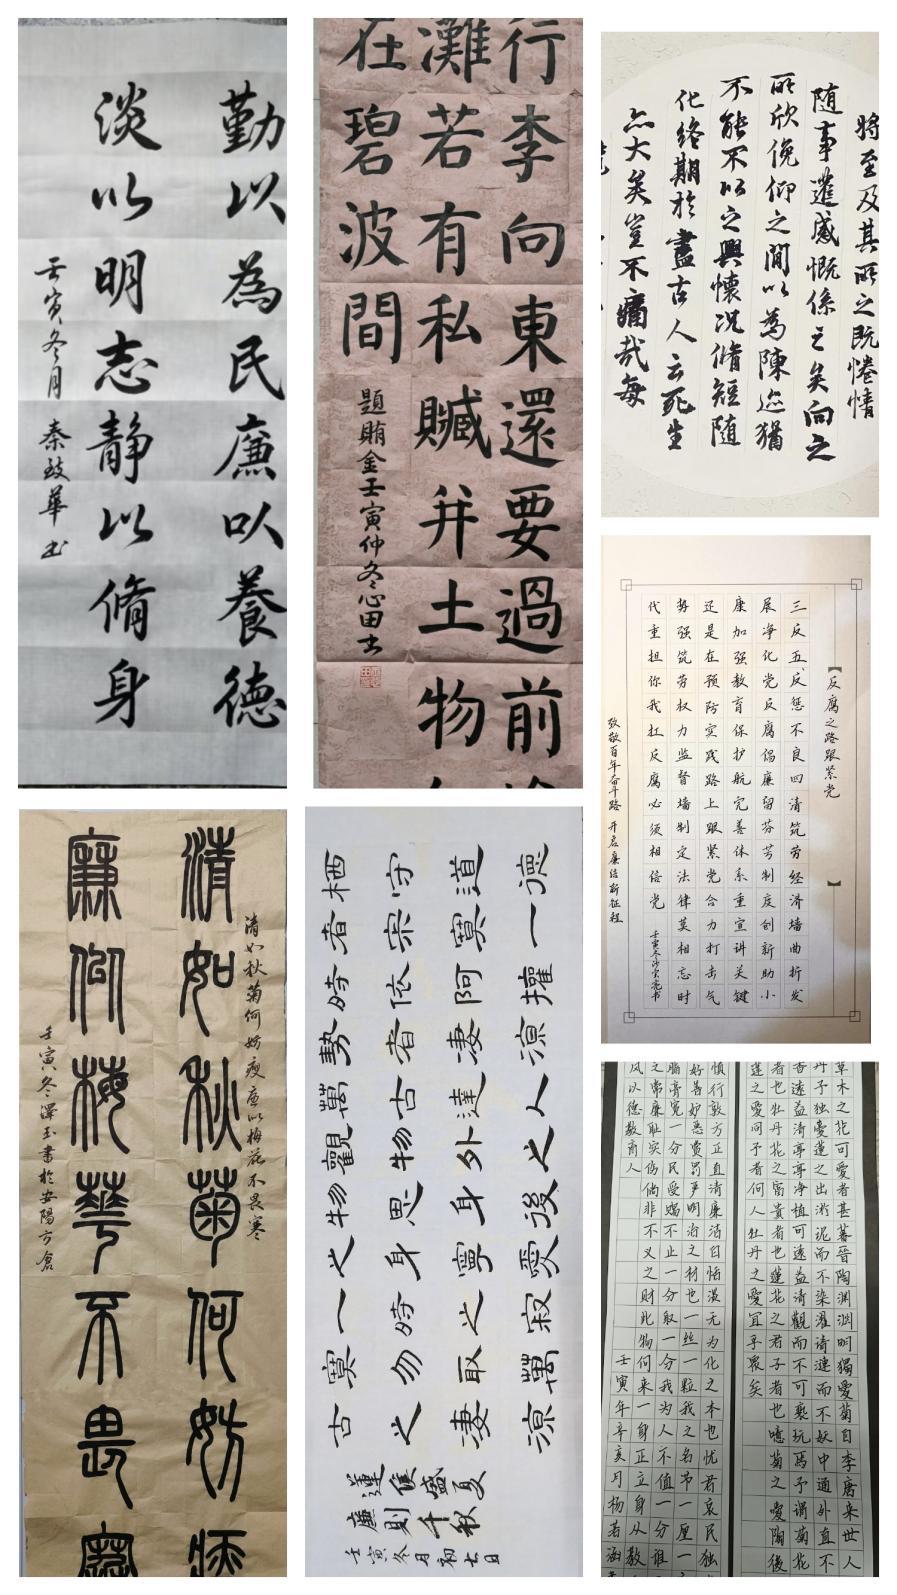 勤以為民廉以養德
淡以明志静以脩身
壬寅冬月
秦歧華书
行李向東還要過前
灘若有私贓并土物
在碧波間
題賄金壬寅仲冬心田书
將至及其所之既惓情
随事遷感慨係之矣向之
所欣俛仰之間以為陳迹猶
不能不以之興懷况脩短随
化終期於盡古人云死生
亦大矣豈不痛哉每
【反腐之路跟紧党】
三反五反惩不良四清筑劳经济墙曲折发
展净化党反腐倡廉留芬芳制度创新助小
康加强教育保护航完善体系重宣讲关键
还是在预防实践路上跟紧党合力打击气
势强筑劳权力监督墙制定法律莫相忘时
代重担你我扛反腐必须相信党
致敬百年奋斗路 开启廉洁新征程
清如秋菊何妨瘦廉以梅花不畏寒
清如秋菊何妨瘦
廉似梅花不畏寒
壬寅冬澤玉書於安陽方倉
德一權凛人之後愛寂萬凛
道寞阿凄達外身寧之取凄
守宗依者古物思身時勿之
栖者時勢萬觀物之一寞古
蓮侯盛夏
廉則千秋
壬寅冬月初七日
草木之花可愛者甚蕃晉陶渊明獨愛菊自李唐来世人
丹予独愛蓮之出淤泥而不染濯清漣而不妖中通外直不
香遠益清亭亭净植可遠觀而不可褻玩焉予謂菊花
者也牡丹花之富貴者也蓮花之君子者也噫菊之愛陶後
蓮之愛同予者何人牡丹之愛宜乎衆矣
慎行敦方正直清廉洁白恬淡无为化之本也忧君哀民独
好善妒恶赏罚严明治之材也一丝一粒我之名节一厘一
脂膏宽一分民受赐不止一分取一分我为人不值一分谁
之常廉耻实伤倘非不义之财此物何来一身正立身从
风以德教育人
壬寅年辛亥月杨若涵